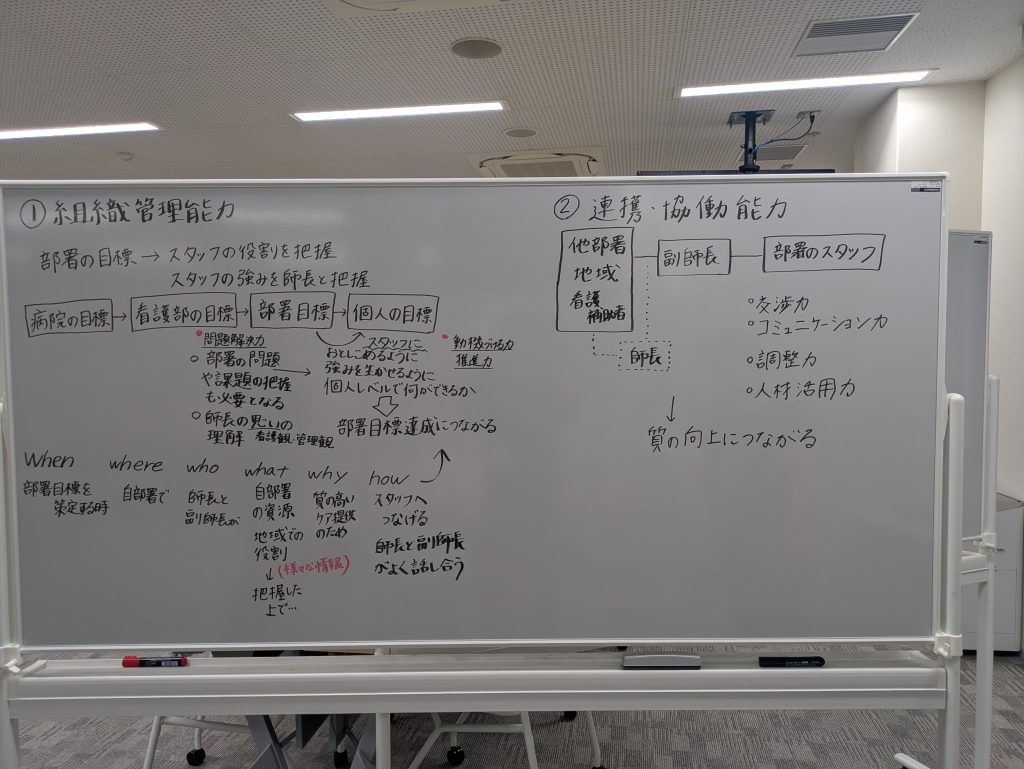 ① 組織管理能力
部署の目標 → スタッフの役割を把握
スタッフの強みを師長と把握
病院の目標 → 看護部の目標 → 部署目標 → 個人の目標
問題解決力
○ 部署の問題
や課題の把握
も必要となる
○ 師長の思いの
理解 看護観・管理観
スタッフに
おとしこめるように
強みを生かせるように
個人レベルで何ができるか
動機づける力
推進力
部署目標達成につながる
when
部署目標を
策定する時
where
自部署で
who
師長と
副師長が
what
自部署
の資源
地域での
役割
↓ (様々な情報)
把握した
上で…
why
質の高い
ケア提供
のため
how
スタッフへ
つなげる
師長と副師長
がよく話し合う
② 連携・協働能力
他部署
地域
看護
補助者
副師長
部署のスタッフ
師長
○交渉力
○コミュニケーション力
○調整力
○人材活用力
↓
質の向上につながる